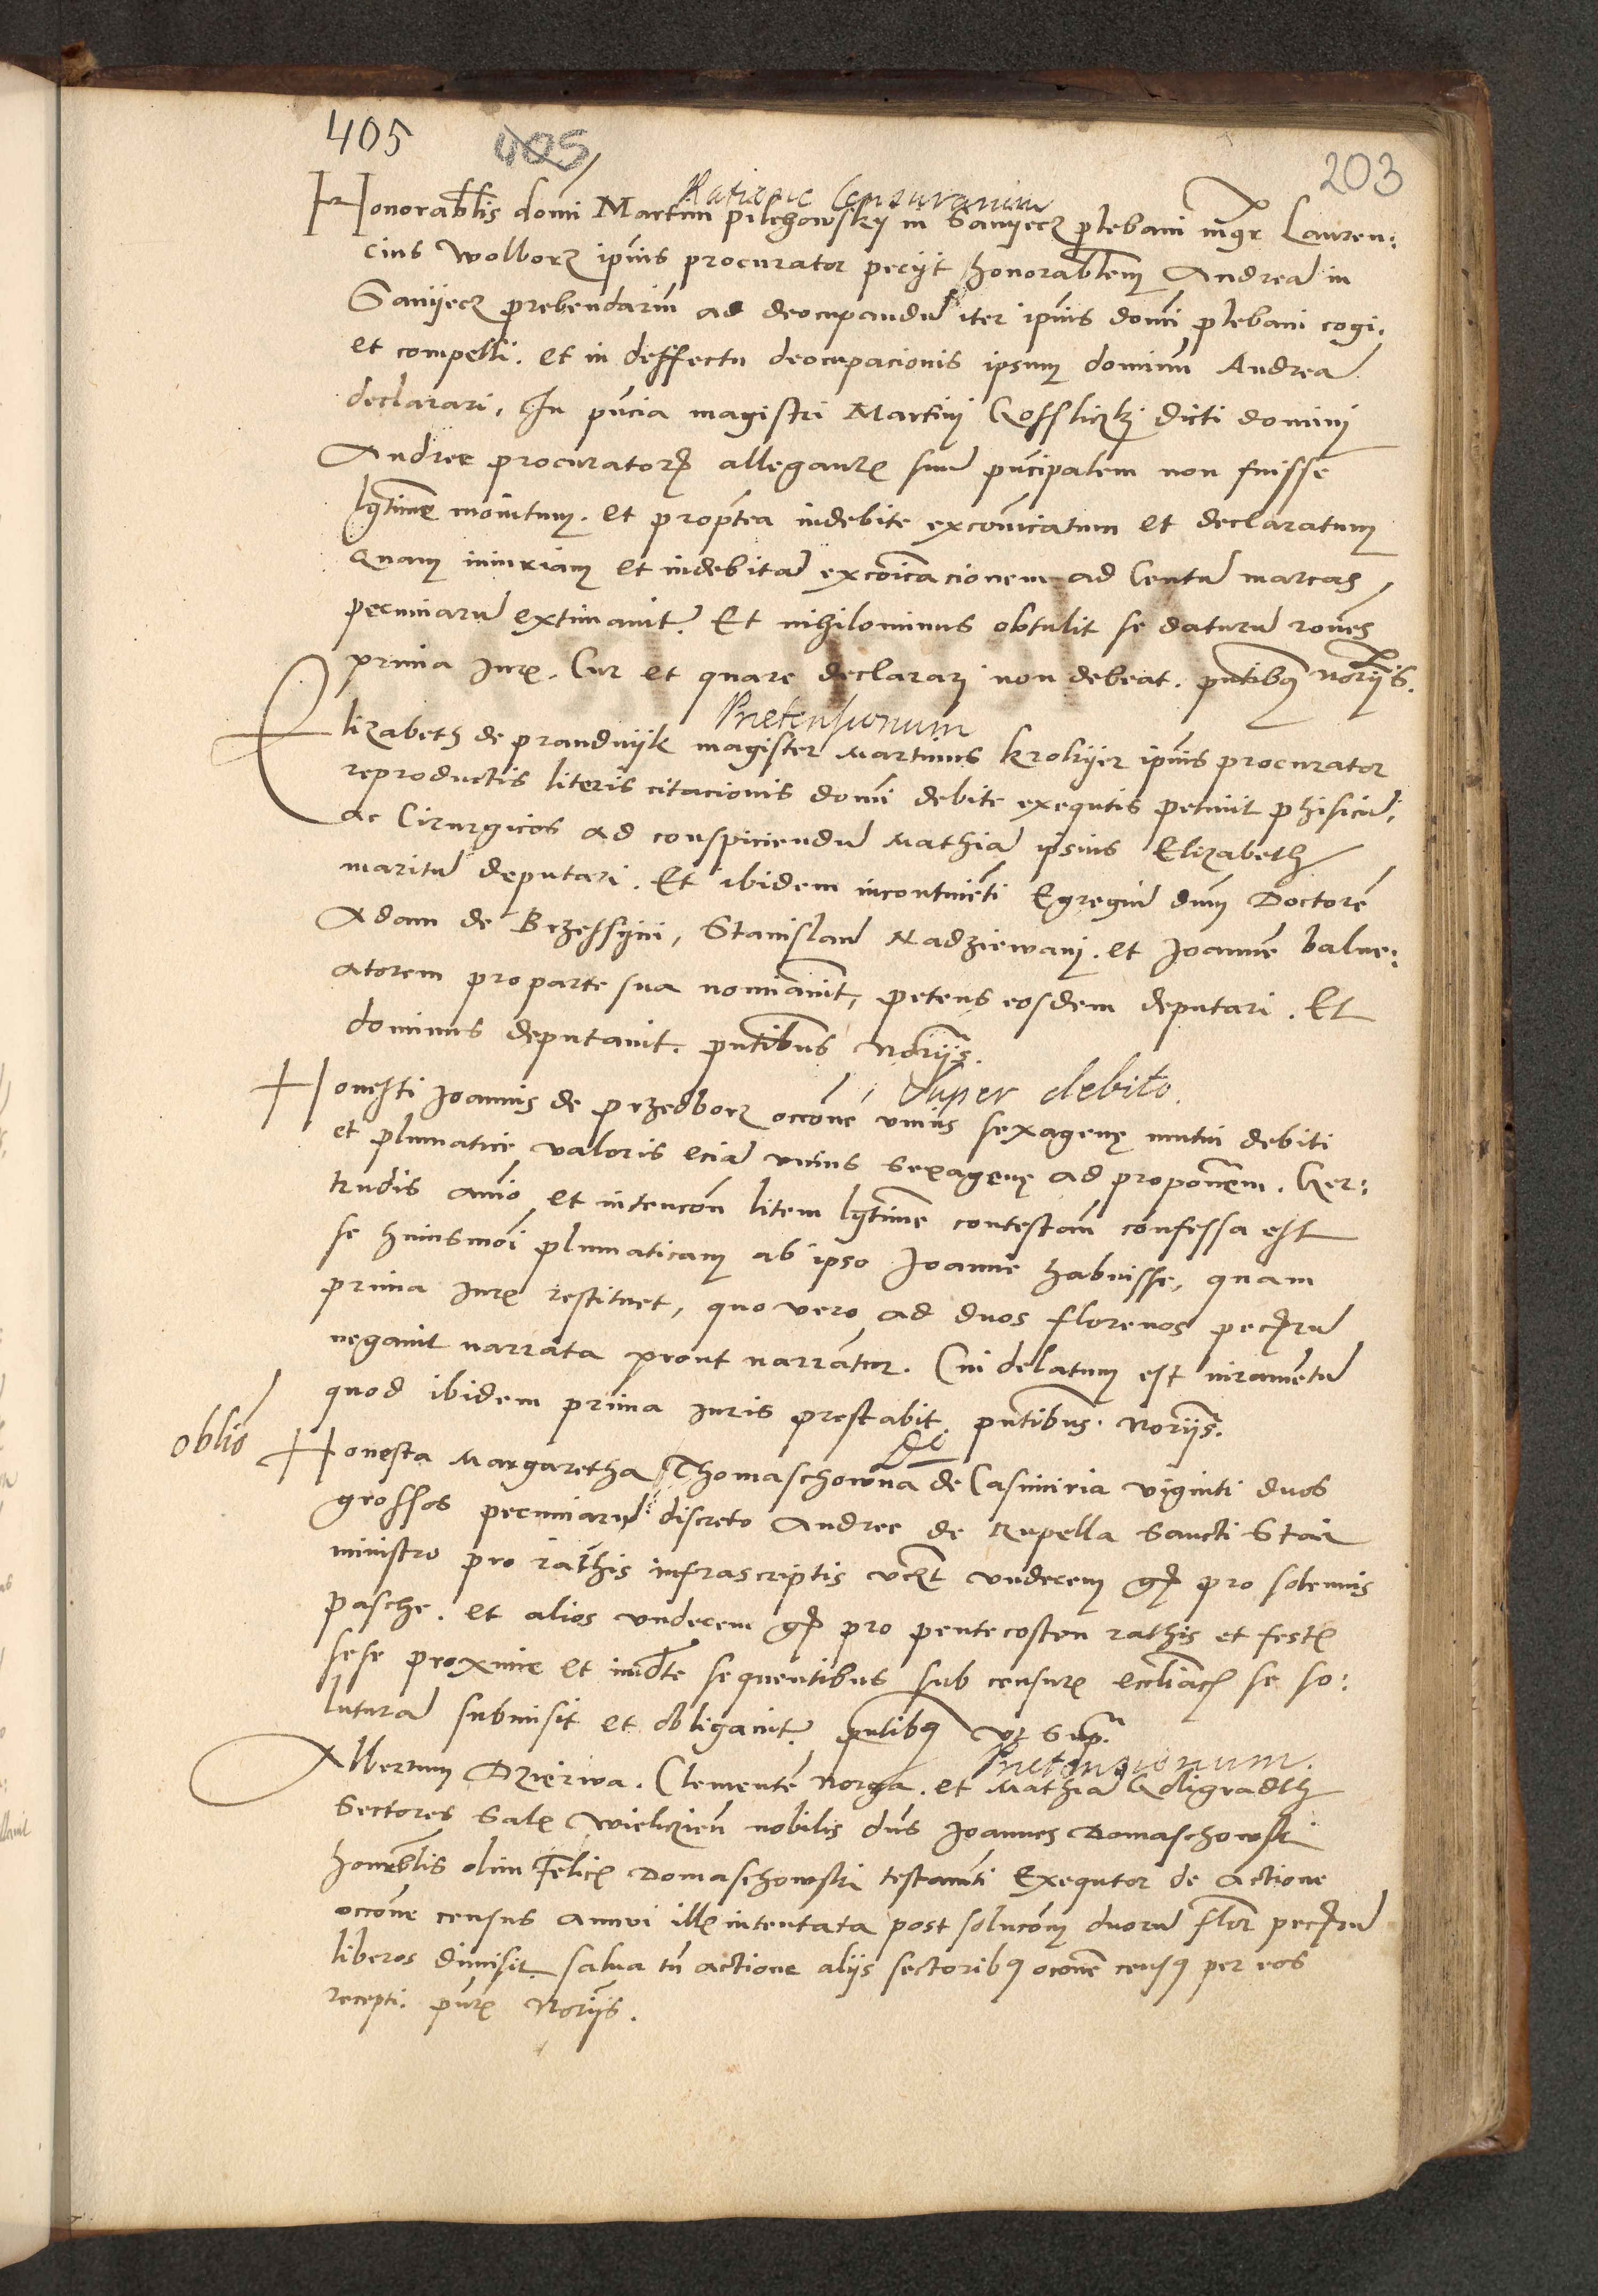 405 405 203
Ratione Censurarum
Honorablis domi Martini pilchowsky in Sanyecz plebani mgr Lauren:
cius Wolborz ipius procurator pecyt honorablem Andrea in
Sanyecz prebendariu ad deocupandu iter ipius domi plebani cogi.
et compelli. et in deffectu deocupacionis ipsum dominu Andrea
declarari. In pncia magistri Martini dicti domini
Andree procuratoris allegantis suu principalem non fuisse
lgtime monitum. et proptea indebite excoicatum et declaratum
Quam iniuriam et indebita excoicacionem ad Centu marcas
pecuniaru extimavit. Et nihilominus obtulit se daturu rones
prima Iuris. Cur et quare declarari non debeat. pntibus noriis.
Pretensionum
Elizabeth de prandnijk magister Martinus krokyer ipius procurator
reproductis literis citacionis domi debite exequtis petiuit phisicu
ac Cirurgicos ad conspiciendu Mathia ipsius Elizabeth
maritu deputari. Et ibidem incontineti Egregiu dnm Doctore
Adam de Brzessyni, Stanislau Nadziewany. et Joanne balne:
atorem pro parte sua nominauit, petens eosdem deputari. Et
dominus deputauit. pntibus Noriis.
Super debito.
Honesti Joannis de przedborz occone vnius sexagene mutui debiti
et plumatice valoris ecia vnius Sexagene ad proponem. Ger:
trudis anio et intencon litem lgtime contestan confessa est
se huiusmoi plumaticam ab ipso Joanne habuisse, quam
prima Iuris restituet, quo vero ad duos florenos pecru
negauit narrata prout narrantur. Cui delatum est iuramentu
quod ibidem prima iuris prestabit. pntibus. Noriis.
oblio
Honesta Margaretha Thomaschowna de Casimiria viginti duos
grossos pecuniaru discreto Andree de Capella Sancti Stan
ministro pro rathis infrascriptis vczt vndecem gr pro solennis
pasche. et alios vndecem gr pro pentecosten rathis et festis
sese proxime et imdte sequentibus sub censuris eccliacis se so:
lutura submisit et obligauit. pntibus vt Sup.
Pretensionum.
Albertum Dzierwa. Clemente Norga. et Mathia Goligradth
Sectores Salis Wieliczien nobilis dns Joannes Domaschowski
honorblis olim Felicis Domaschowski testamti Exequtor de actione
occone census annui illis intentata post solucom duoru flor pecru
liberos dimisit. salua tn actione aliis sectoribus occone census per eos
recepti. pntis Noriis.